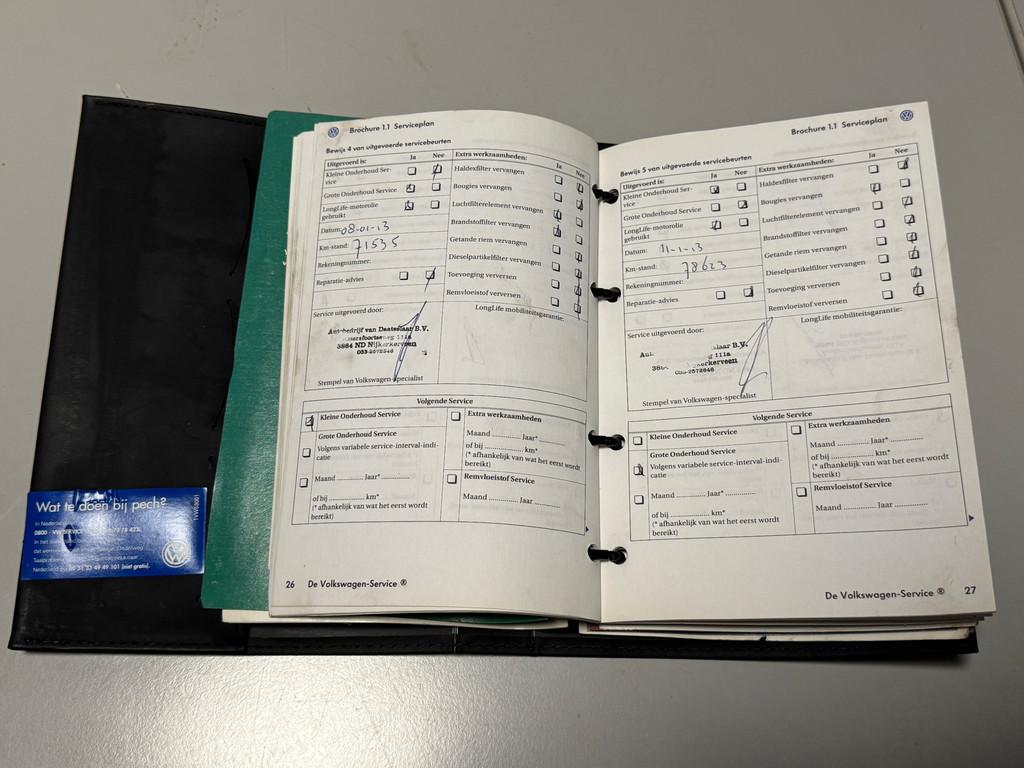 Brochure 1.1 Serviceplan
Bewijs 4 van uitgevoerde servicebeurten
Uitgevoerd is: Ja Nee
Kleine Onderhoud Ser-
vice
Grote Onderhoud Service
LongLife-motorolie
gebruikt
Datum: 08-01-13
Km-stand: 71535
Rekeningnummer:
Reparatie-advies
Extra werkzaamheden: Ja Nee
Haldexfilter vervangen
Bougies vervangen
Luchtfilterelement vervangen
Brandstoffilter vervangen
Getande riem vervangen
Dieselpartikelfilter vervangen
Toevoeging verversen
Remvloeistof verversen
Service uitgevoerd door:
Autobedrijf van Daatselaar B.V.
111a
3864 ND Nijkerkerveen
033-2572648
Stempel van Volkswagen-specialist
LongLife mobiliteitsgarantie:
Volgende Service
Kleine Onderhoud Service
Grote Onderhoud Service
Volgens variabele service-interval-indi-
catie
Maand ............ Jaar* ............
of bij ............ km*
(* afhankelijk van wat het eerst wordt
bereikt)
Extra werkzaamheden
Maand ............ Jaar* ............
of bij ............ km*
(* afhankelijk van wat het eerst wordt
bereikt)
Remvloeistof Service
Maand ............ Jaar ............
26 De Volkswagen-Service ®
Brochure 1.1 Serviceplan
Bewijs 5 van uitgevoerde servicebeurten
Uitgevoerd is: Ja Nee
Kleine Onderhoud Ser-
vice
Grote Onderhoud Service
LongLife-motorolie
gebruikt
Datum: 11-1-13
Km-stand: 78623
Rekeningnummer:
Reparatie-advies
Extra werkzaamheden: Ja Nee
Haldexfilter vervangen
Bougies vervangen
Luchtfilterelement vervangen
Brandstoffilter vervangen
Getande riem vervangen
Dieselpartikelfilter vervangen
Toevoeging verversen
Remvloeistof verversen
Service uitgevoerd door:
B.V.
111a
033-2572648
Stempel van Volkswagen-specialist
LongLife mobiliteitsgarantie:
Volgende Service
Kleine Onderhoud Service
Grote Onderhoud Service
Volgens variabele service-interval-indi-
catie
Maand ............ Jaar* ............
of bij ............ km*
(* afhankelijk van wat het eerst wordt
bereikt)
Extra werkzaamheden
Maand ............ Jaar* ............
of bij ............ km*
(* afhankelijk van wat het eerst wordt
bereikt)
Remvloeistof Service
Maand ............ Jaar ............
De Volkswagen-Service ® 27
Wat te doen bij pech?
In Nederland
0800 - VW SERVICE